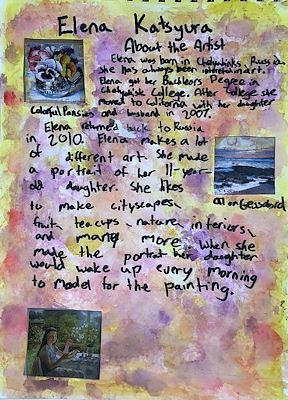 Elena Katsyura
About the Artist
Elena was born in Chelyabinks, Russia
she has always been intrested in art.
Elena got her Bachelors Degree in
Chelyabisk College. After College she
moved to California with her daughter
Colorful Pansies and husband in 2007.
Elena returned back to Russia
in 2010. Elena makes a lot
of different art. She made
a portrait of her 11-year-
old daughter. She likes
Oil on Gessobord
to make cityscapes,
fruit, tea cups, nature, inferiors,
and many more. When she
made the portrait her daughter
would wake up every morning
to model for the painting.